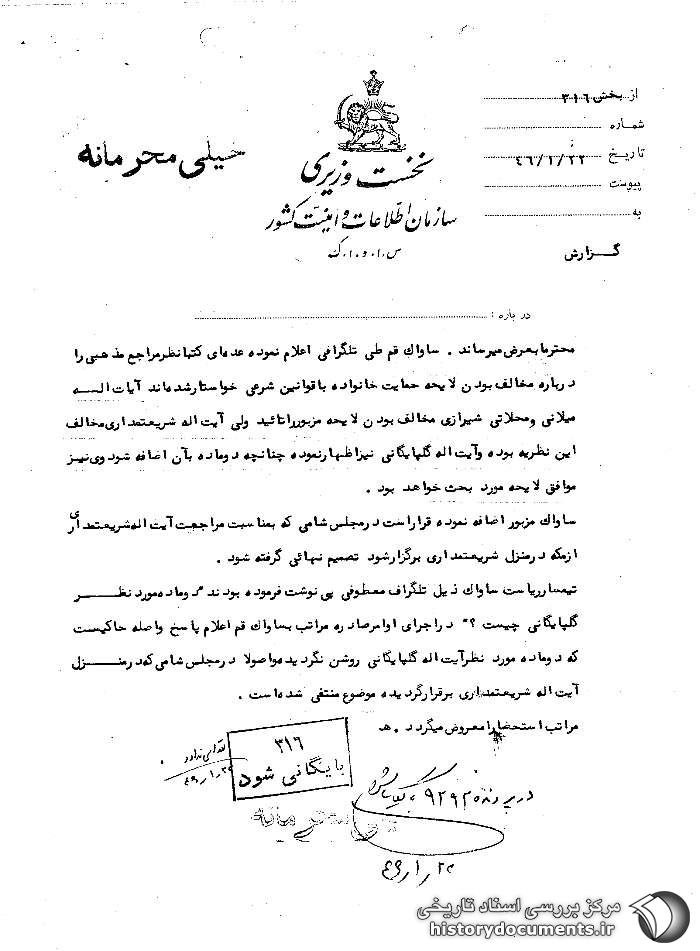 خیلی محرمانه
نخست وزیری
سازمان اطلاعات و امنیت کشور
س.ا.و.ا.ک
از بخش ۳۱۶
شماره
تاریخ ۴۶/۱/۲۲
پیوست
به
گزارش
درباره :
محترما بعرض میرساند . ساواك قم طی تلگرافی اعلام نموده عده‌ای کتبا نظر مراجع مذهبی را
درباره مخالف بودن لایحه حمایت خانواده با قوانین شرعی خواستار شده‌اند آیات اله
میلانی ومحلاتی شیرازی مخالف بودن لایحه مزبور را تائید ولی آیت اله شریعتمداری مخالف
این نظریه بوده وآیت اله گلپایگانی نیز اظهار نموده چنانچه دوماده بآن اضافه شود وی نیز
موافق لایحه مورد بحث خواهد بود .
ساواك مزبور اضافه نموده قرار است در مجلس شامی که بمناسبت مراجعت آیت اله شریعتمداری
از مکه در منزل شریعتمداری برگزار شود تصمیم نهائی گرفته شود .
تیمسار ریاست ساواك ذیل تلگراف معطوفی پی نوشت فرموده بودند "دوماده مورد نظر
گلپایگانی چیست ؟" در اجرای اوامر صادره مراتب بساواك قم اعلام پاسخ واصله حاکیست
که دوماده مورد نظر آیت اله گلپایگانی روشن نگردیده واصولا در مجلس شامی که در منزل
آیت اله شریعتمداری برقرار گردیده موضوع منتفی شده است .
مراتب استحضارا معروض میگردد . ه
۳۱۶
بایگانی شود
اقدامی ندارد
در پرونده ۹۲۹۳ گلپایگانی
مرکز بررسی اسناد تاریخی
historydocuments.ir